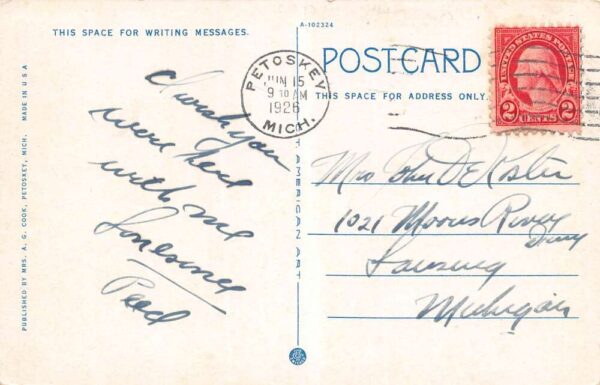 THIS SPACE FOR WRITING MESSAGES.
A-102324
POSTCARD
THIS SPACE FOR ADDRESS ONLY.
PETOSKEY
JUN 15
9 30 AM
1926
MICH.
UNITED STATES POSTAGE
2 CENTS 2
I wish you
were here
with me
Lonesome
Mrs John DeKoster
1021 Moores River
Lansing
Michigan
AMERICAN ART
PUBLISHED BY MRS. A. G. COOK, PETOSKEY, MICH. MADE IN U S A